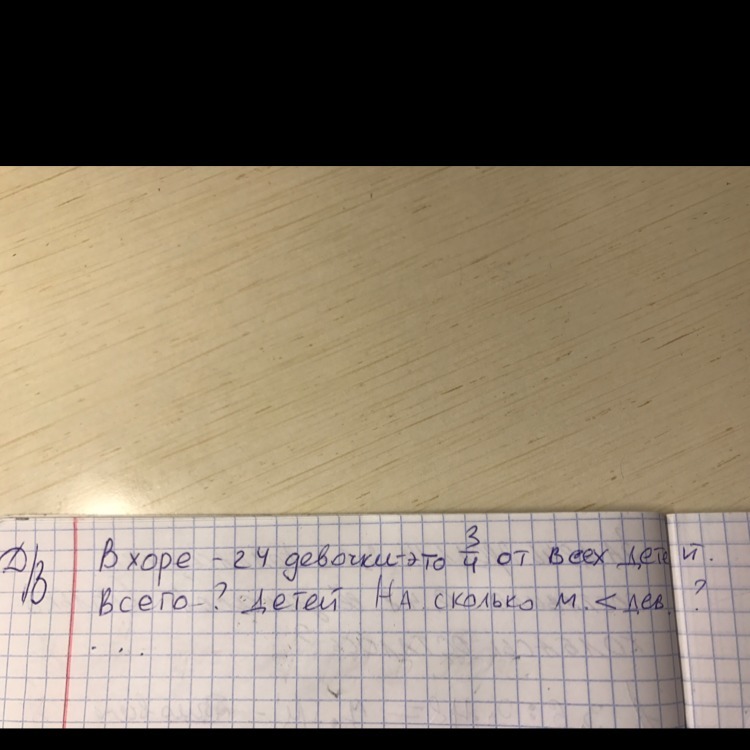 Д/В
В хоре - 24 девочки-это 3/4 от всех детей.
Всего-? детей На сколько м. < дев. ?
...